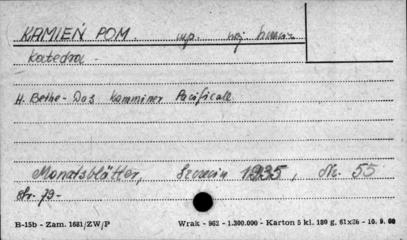 KAMIEŃ POM. woj.
Katedra -
H. Bethe - Das Kamminer Pacificale
Monatsblätter, Szczecin 1935, Nr. 55
str. 79-
B-15b - Zam. 1681/ZW/P Wrak - 962 - 1.300.000 - Karton 5 kl. 180 g, 61x26 - 10. 9. 60